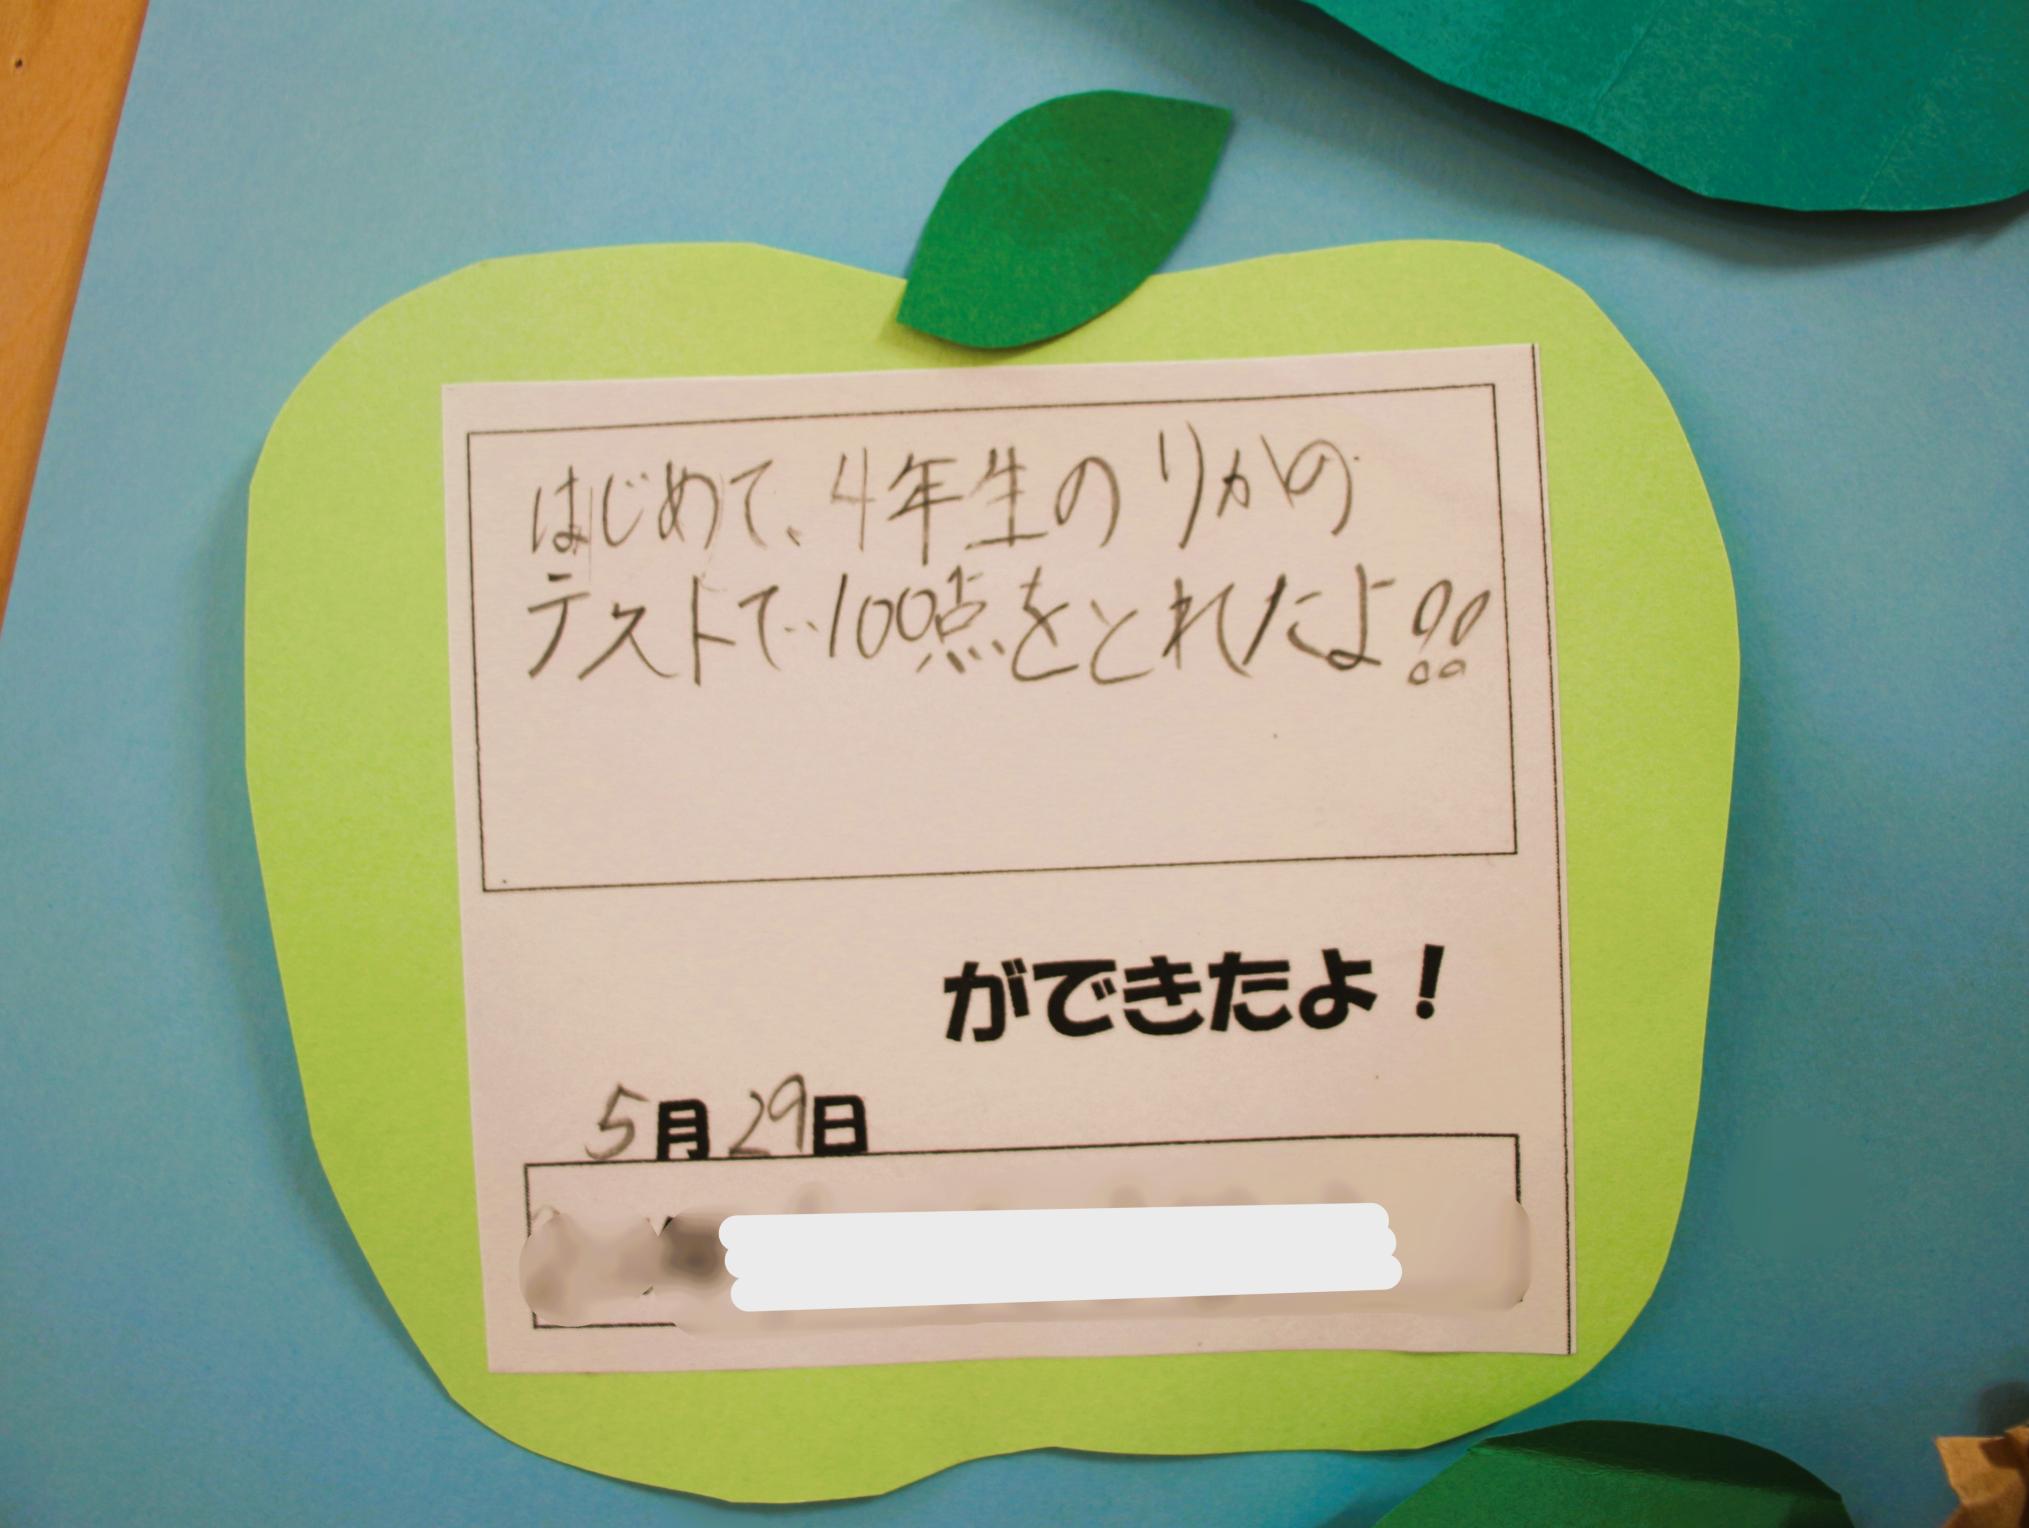 はじめて、4年生のりかの
テストで100点をとれたよ!!
ができたよ！
5月29日